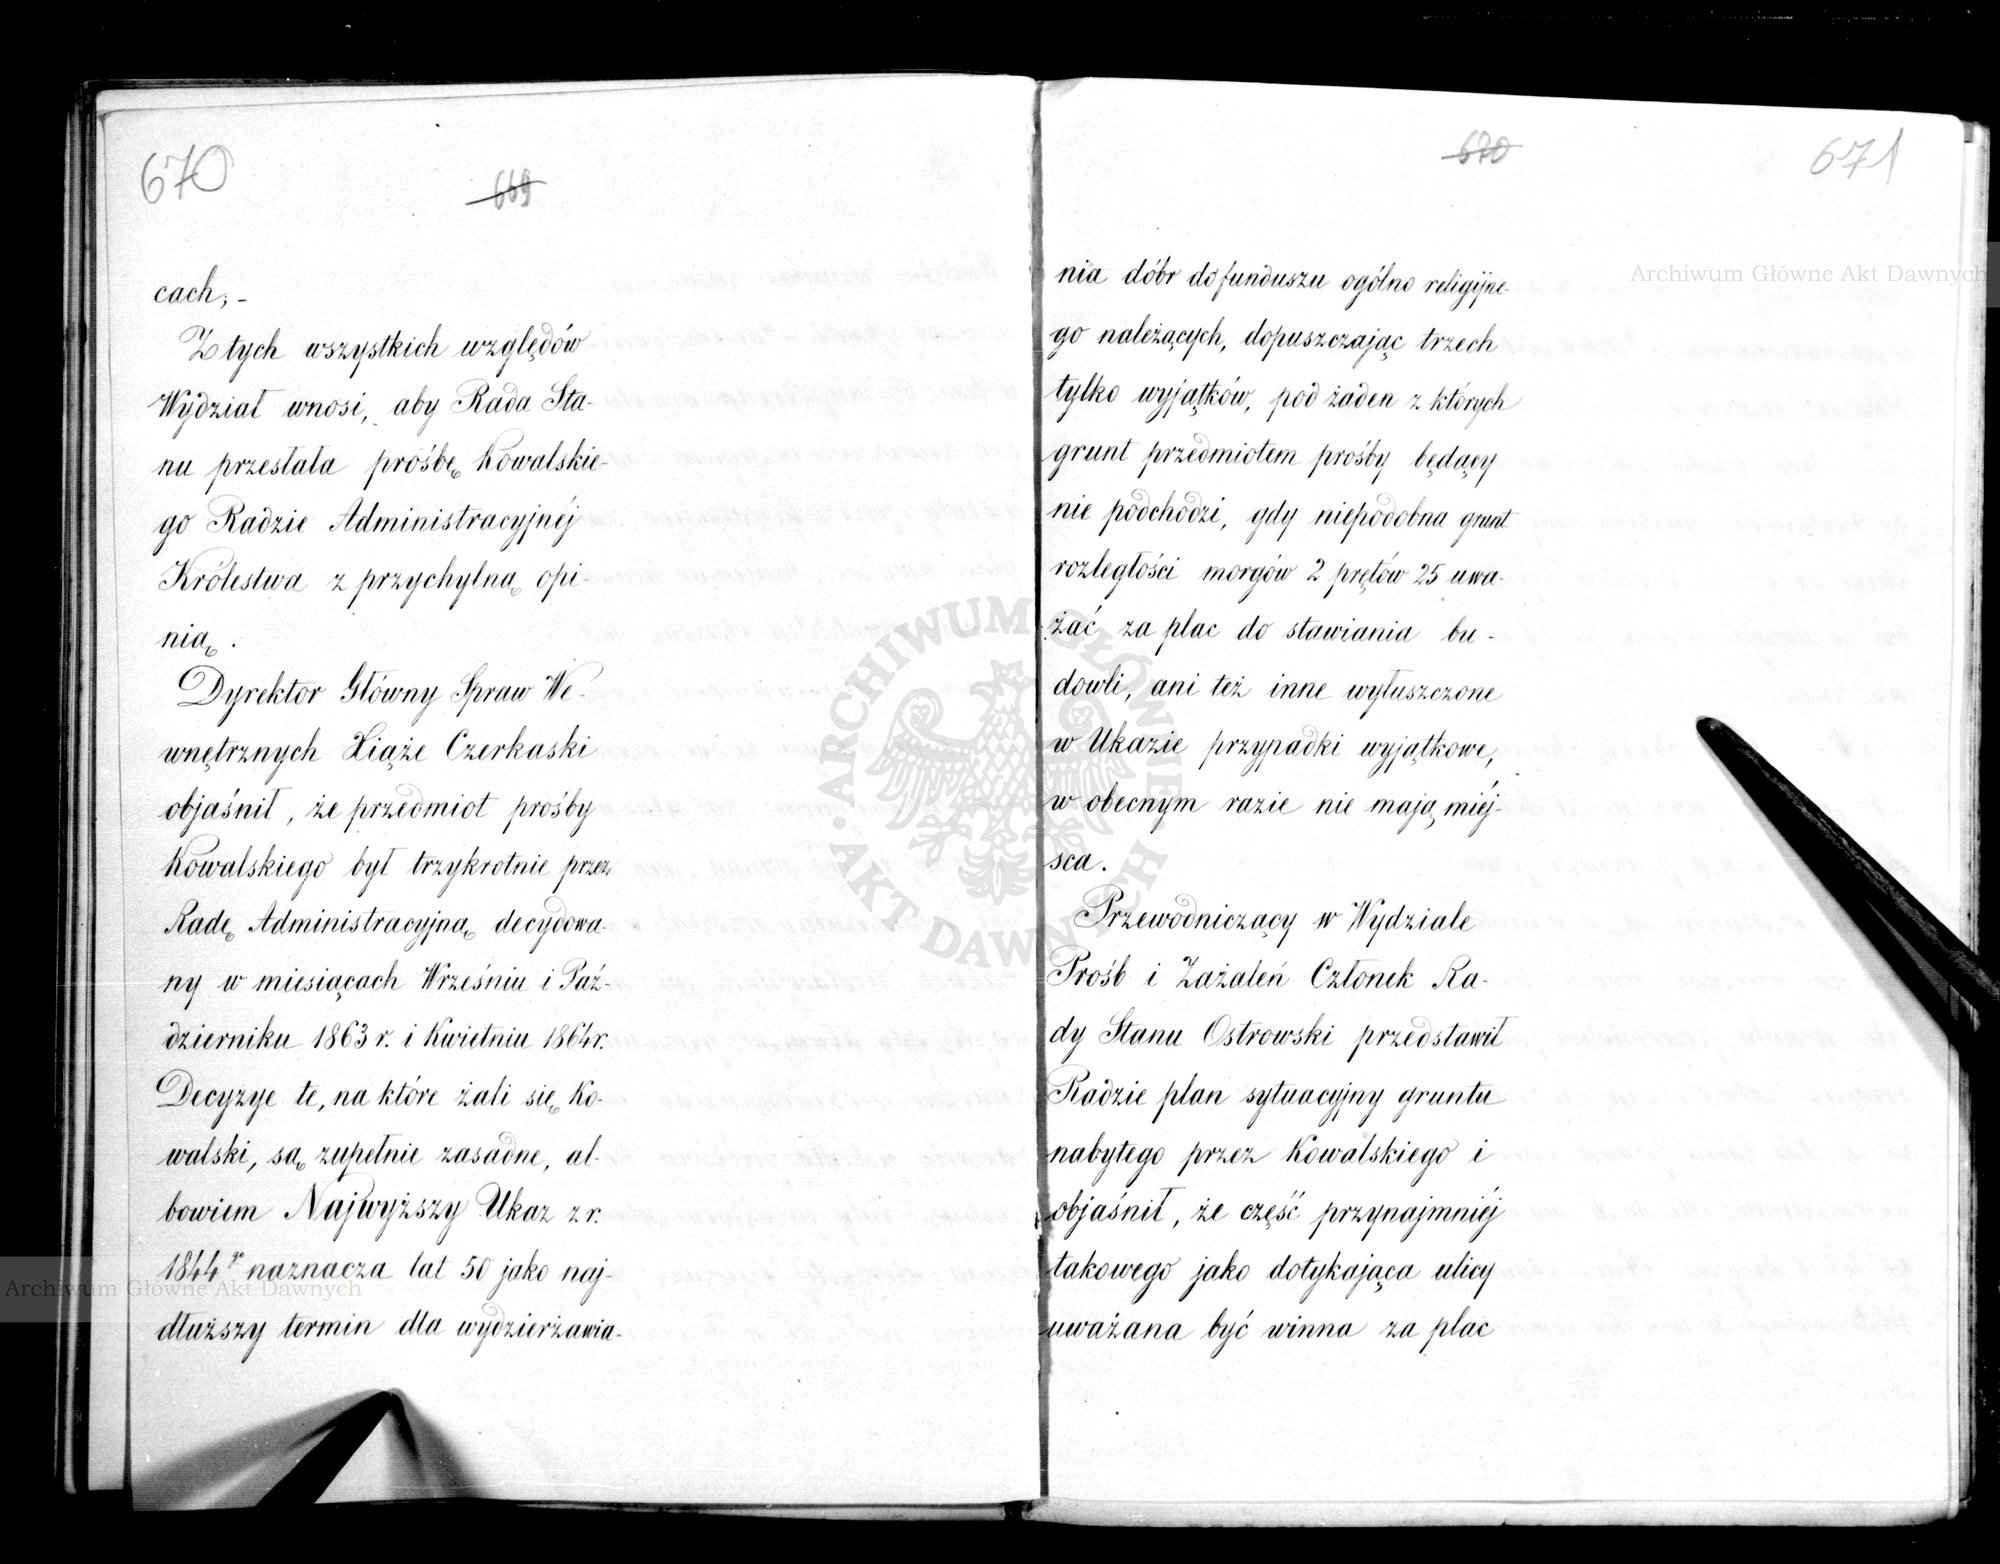 670
669
cach; -
Z tych wszystkich względów
Wydział wnosi, aby Rada Sta-
nu przesłała prośbę Kowalskie-
go Radzie Administracyjnéj
Królestwa z przychylną opi-
nią.
Dyrektor Główny Spraw We-
wnętrznych Xiąże Czerkaski
objaśnił, że przedmiot prośby
Kowalskiego był trzykrotnie przez
Radę Administracyjną decydowa-
ny w miesiącach Wrześniu i Paź-
dzierniku 1863 r. i Kwietniu 1864 r.
Decyzye te, na które żali się Ko-
walski, są zupełnie zasadne, al-
bowiem Najwyższy Ukaz z r.
1844 r naznacza lat 50 jako naj-
dłuższy termin dla wydzierżawia-
670
671
nia dóbr do funduszu ogólno religijne-
go należących, dopuszczając trzech
tylko wyjątków, pod żaden z których
grunt przedmiotem prośby będący
nie podchodzi, gdy niepodobna grunt
rozległości morgów 2 prętów 25 uwa-
żać za plac do stawiania bu-
dowli, ani też inne wyłuszczone
w Ukazie przypadki wyjątkowe,
w obecnym razie nie mają miéj-
sca.
Przewodniczący w Wydziale
Prośb i Zażaleń Członek Ra-
dy Stanu Ostrowski przedstawił
Radzie plan sytuacyjny gruntu
nabytego przez Kowalskiego i
objaśnił, że część przynajmniéj
takowego jako dotykająca ulicy
uważana być winna za plac
Archiwum Główne Akt Dawnych
Archiwum Główne Akt Dawnych
ARCHIWUM GŁÓWNE
AKT DAWNYCH